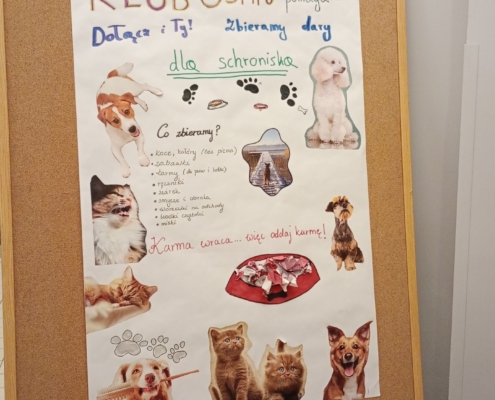 KLUB OSIN pomaga
Dołącz i Ty! Zbieramy dary
dla schroniska
Co zbieramy?
• koce, kołdry (bez pierza)
• zabawki
• karmy (dla psów i kotów)
• ręczniki
• żwirek
• smycze i obroże
• woreczki na odchody
• środki czystości
• miski
Karma wraca... więc oddaj karmę!